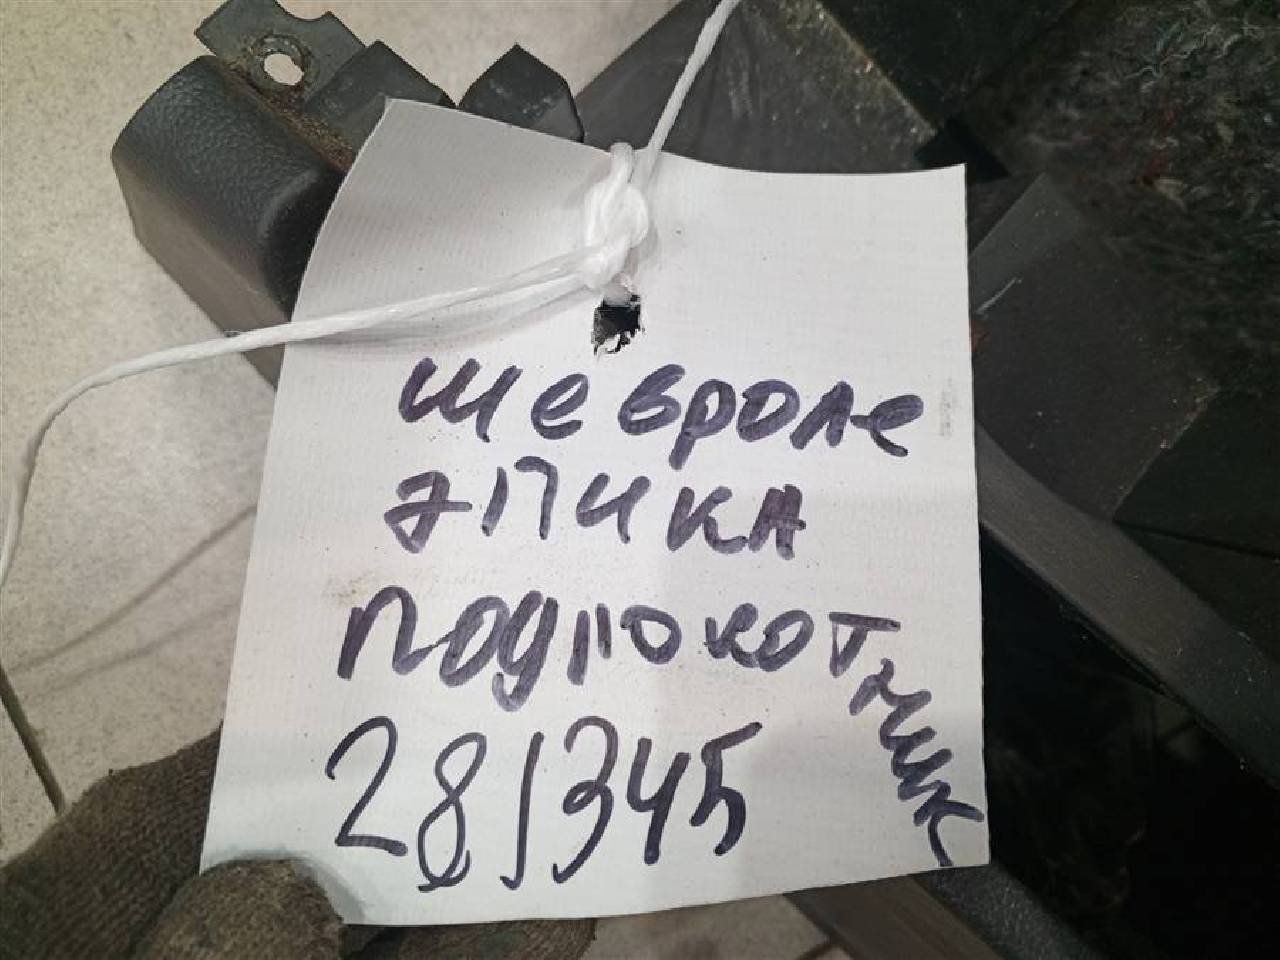 шевроле
эпика
подлокотник
281345